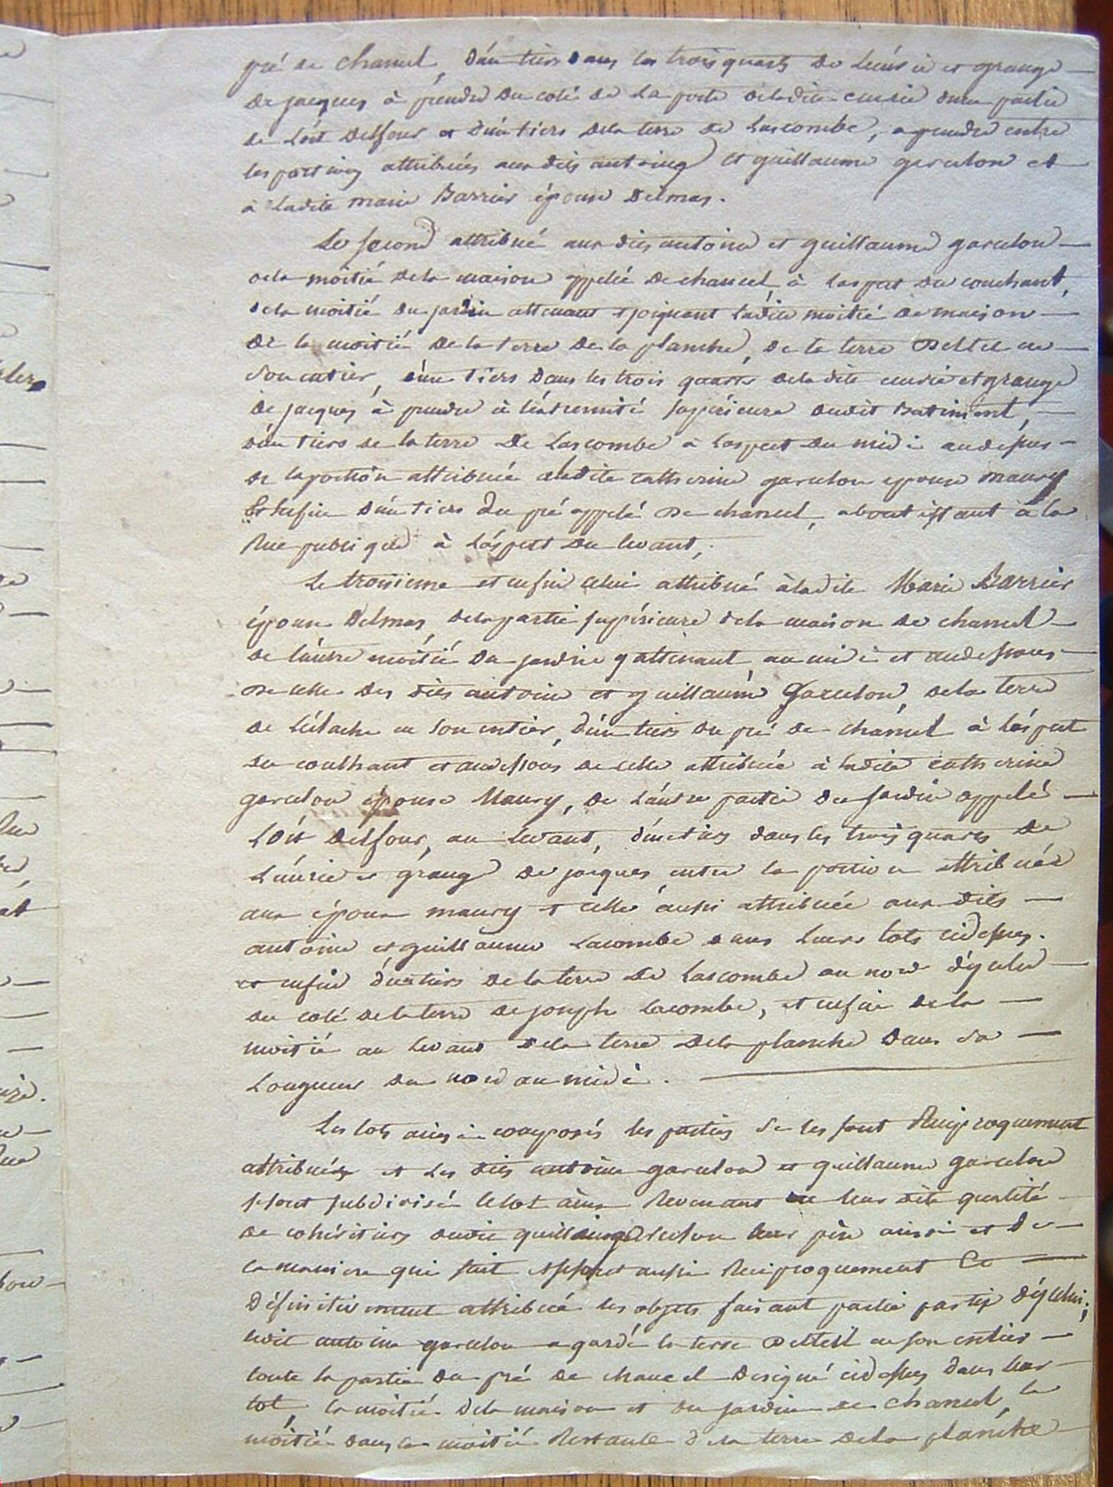 pré de chancel, d'un tiers dans les trois quarts de l'écurie et grange
de jacques à prendre du coté de la porte deladite écurie d'une partie
de l'ort delfour et d'un tiers dela terre de Lascombe, a prendre entre
les portions attribuées aux dits antoine et guillaume garcelon et
à Ladite marie Barrier épouse delmas.
Le second attribué aux dits antoine et guillaume garcelon
dela moitié dela maison appelée de chancel, à l'aspect du couchant,
dela moitié du jardin attenant et joignant ladite moitié de maison
de la moitié de la terre de la planche, de la terre en
son entier, d'un tiers dans les trois quarts deladite écurie et grange
de jacques à prendre à l'éxtremité supérieure dudit Batiment,
d'un tiers de la terre de Lascombe a l'aspect du midi audessus
de la portion attribuée aladite catherine garcelon epouse maury
Et enfin d'un tiers du pré appelé de chancel, aboutissant à la
Rue publique à l'aspect du levant;
Le troisieme et enfin celui attribué àladite Marie Barrier
épouse Delmas dela partie supérieure dela maison de chancel
de l'autre moitié du jardin y attenant, au midi et audessous
de celle des dits antoine et guillaume garcelon, dela terre
de en son entier, d'un tiers du pré de chancel à l'aspect
du couchant et audessous de celle attribuée à ladite catherine
garcelon épouse Maury, de l'autre partie du jardin appelé
L'Ort delfour, au levant, d'un tiers dans les trois quarts de
l'écurie et grange de jacques entre la portion attribuée
aux époux maury et celle aussi attribuée aux dits
antoine et guillaume Lacombe dans leurs lots cidessus.
et enfin d'un tiers de la terre de Lascombe au nord d'ycelle
du coté de la terre de joseph Lacombe, et enfin de la
moitié au levant dela terre dela planche dans sa
Longueur du nord au midi.
Les lots ainsi composés les parties se les sont Réciproquement
attribués et les dits antoine garcelon et guillaume garcelon
ont subdivisé le lot à eux Revenant en leur dite qualité
de cohéritiers dudit guillaume garcelon leur père ainsi et de
la maniere qui suit et se sont aussi Réciproquement Et
définitivement attribué les objets faisant partie d'ycelui;
soit antoine garcelon a gardé la terre en son entier
toute la partie du pré de chancel designé cidessus dans leur
lot la moitié dela maison et du jardin de chancel, la
moitié dans la moitié Restante dela terre dela planche